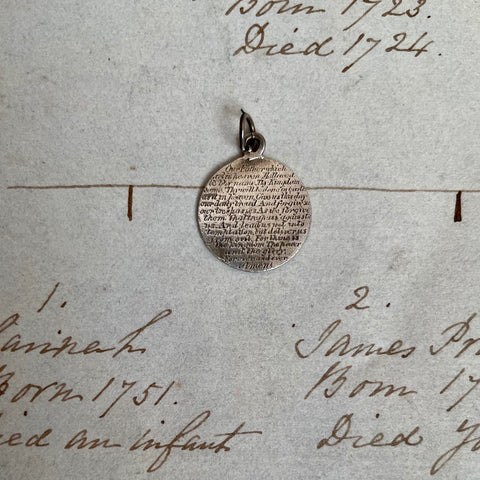 Born 1723.
Died 1724.
Our Father which
art in heaven Hallowed
be Thy name Thy Kingdom
come Thy will be done in earth
as it is in heaven Give us this day
our daily bread And forgive us
our trespasses As we forgive
them That trespass against
us And lead us not into
temptation but deliver us
from evil For thine is
the kingdom The power
and The glory
for ever and ever
Amen
1.
Hannah
Born 1751.
Died an infant
2.
James Pr
Born 17
Died